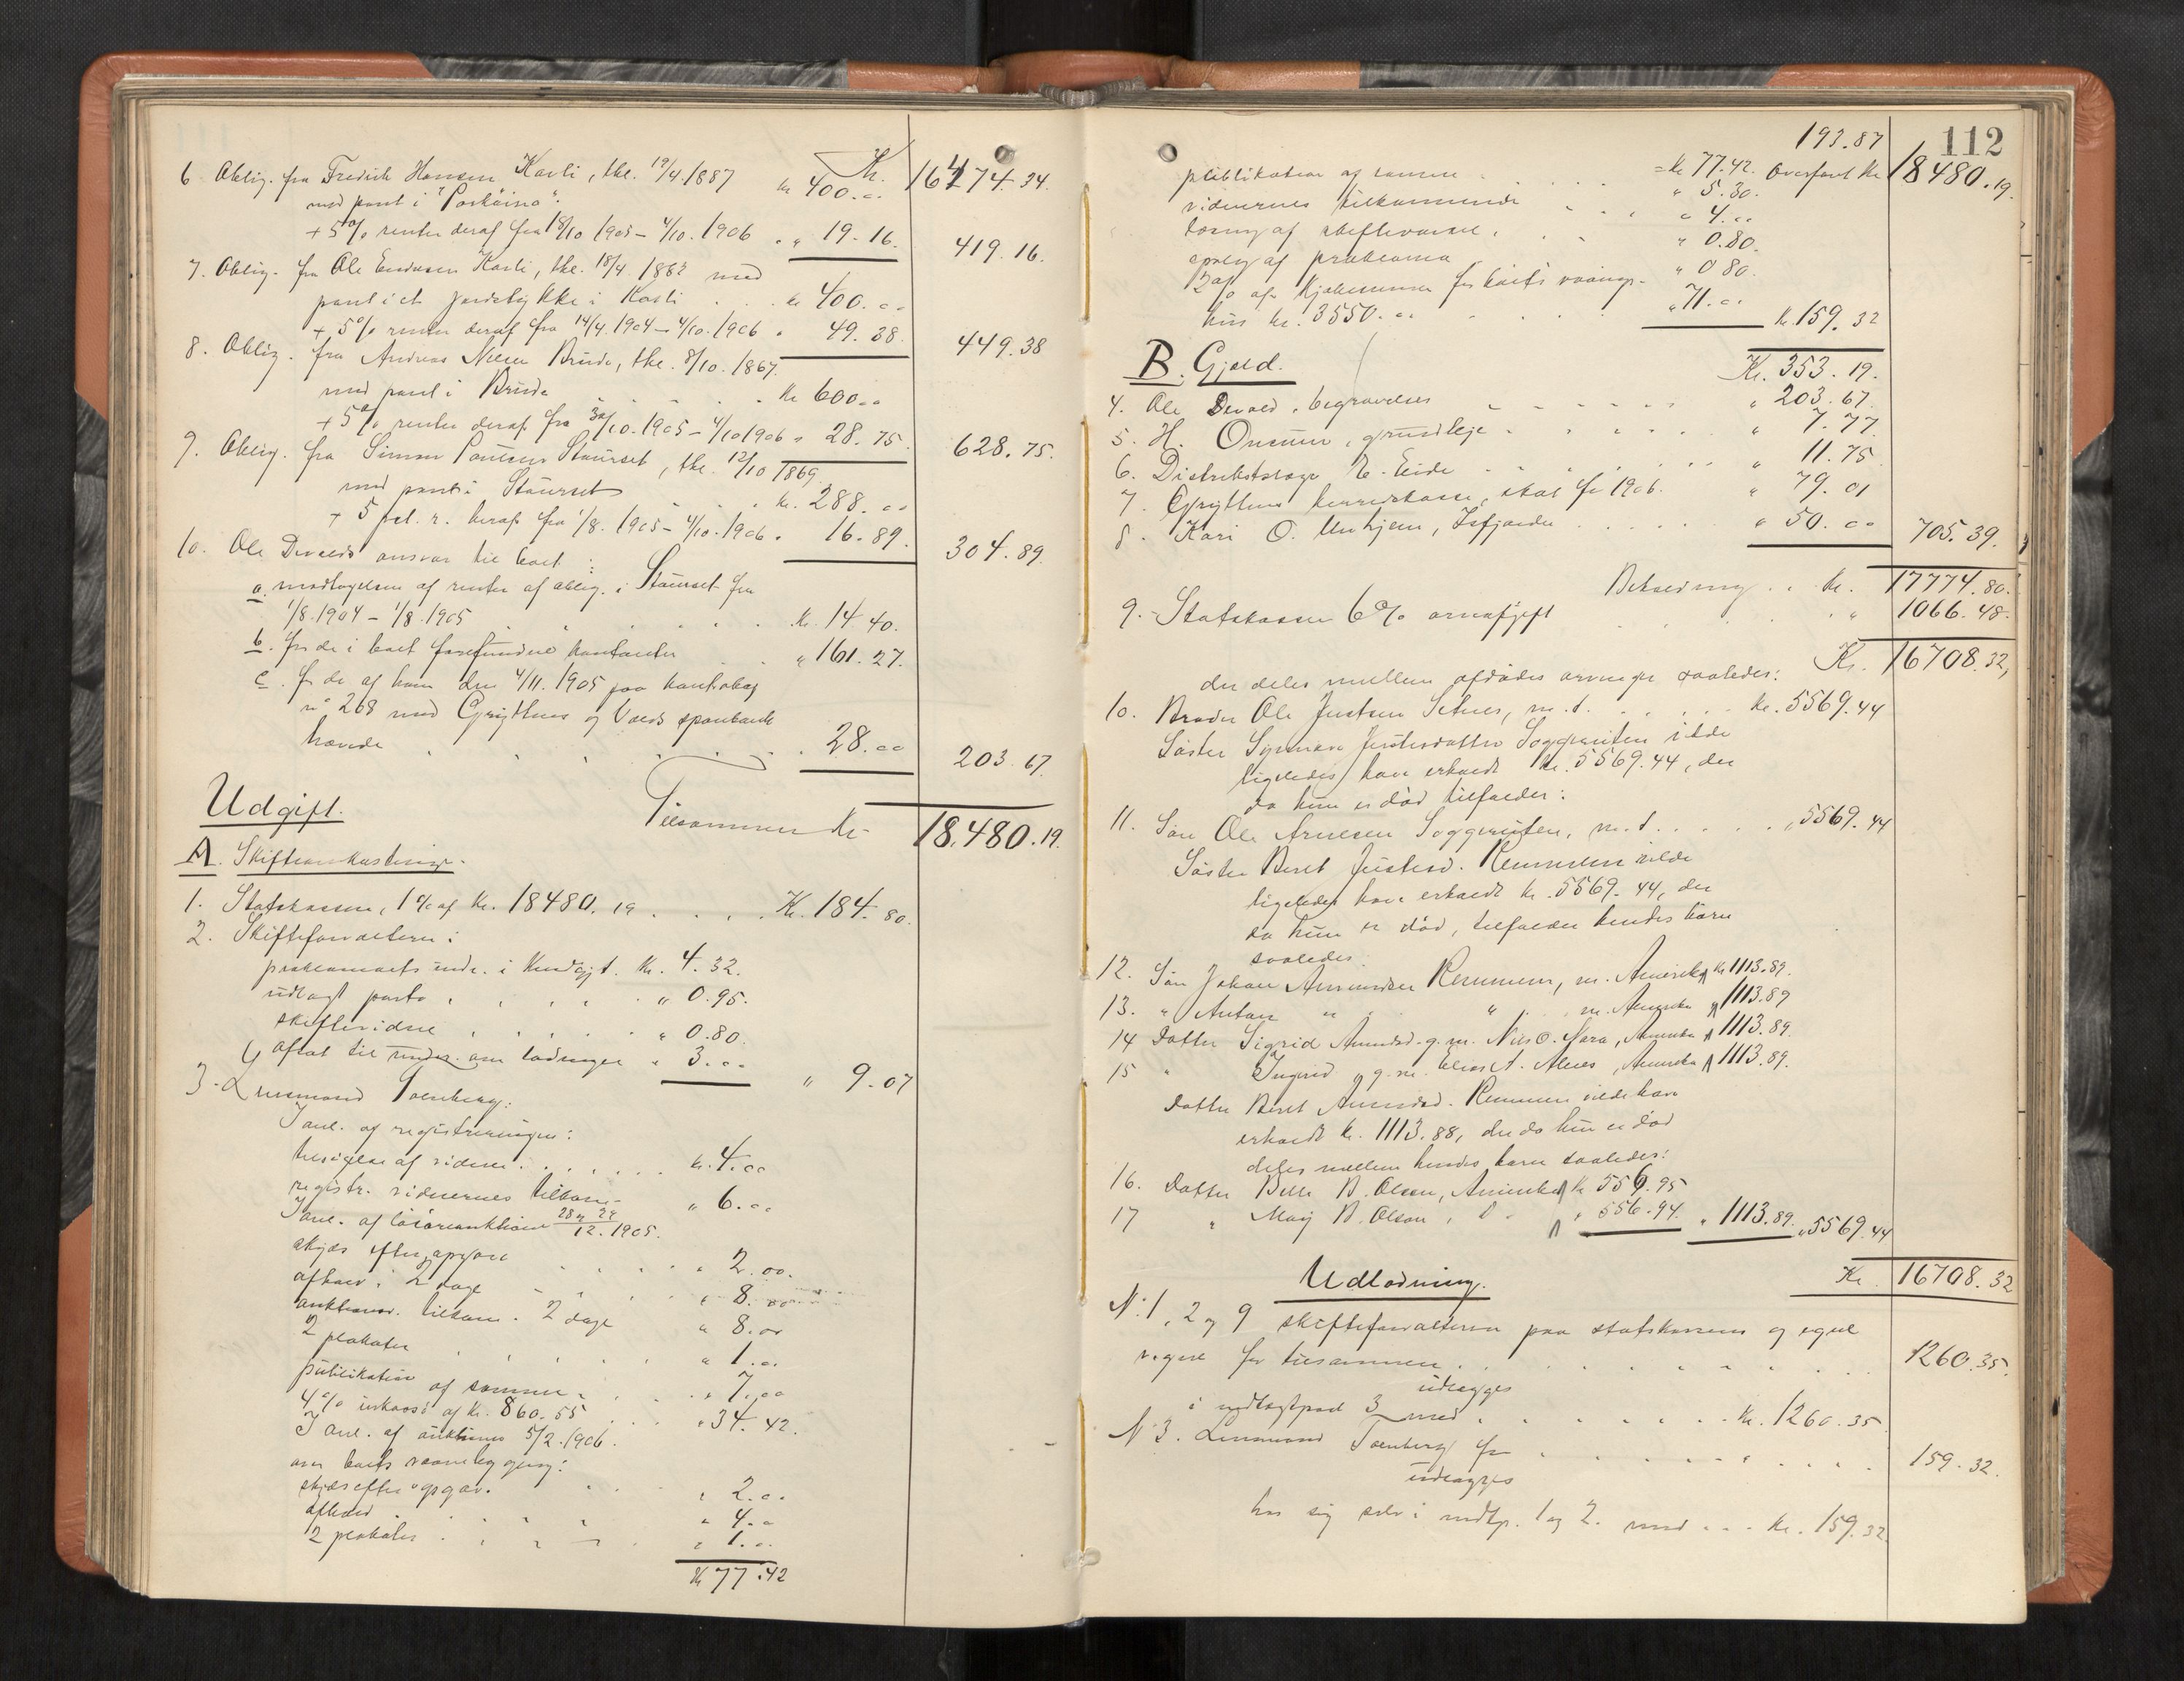 Kr. 16474.34
6 Oblig. fra Fredrik Hansen Kavli, thl. 19/4.1887 kr 400.00
med pant i "Porkåina".
+ 5% renter deraf fra 18/10 1905 – 4/10.1906 . „ 19.16. 419.16.
7. Oblig. fra Ole Endresen Kavli, thl. 18/4 1883 med
pant i et jordstykke i Kavli . . . kr 400.00
+ 5% renter deraf fra 14/4.1904 – 4/10.1906 „ 49.38. 449.38
8. Oblig. fra Andreas Nilsen Brude, thl. 8/10.1867.
med pant i Brude . . . . . Kr 600.00
+ 5% renter deraf fra 30/10.1905 – 4/10 1906 „ 28.75. 628.75.
9. Oblig. fra Simon Paulsen Staurset, thl. 12/10 1869.
med pant i Staurset . . . . kr. 288.00
+ 5 pct. r. heraf fra 1/8.1905 – 4/10.1906 . 16.89. 304.89.
10. Ole Devolds ansvar til boet :
a. modtagelsen af renter af oblig. i Staurset fra
1/8.1904 – 1/8.1905 . . . . . Kr. 14 40.
b. for de i boet forefundne kontanter . . „ 161.27.
c. for de af ham den 4/11.1905 paa kontrabog
nr 268 med Grytten og Voeds sparebank
hævede . . . . . . . 28.00 203.67.
Tilsammen Kr. 18.480.19.
Udgift.
A. Skifteomkostninger.
1. Statskassen, 1% af Kr. 18480.19 . . . . Kr. 184.80.
2. Skifteforvalteren :
proklamaets indr. i Kundgjt. Kr. 4.32.
udlagt porto . . . . . „ 0.95.
skiftevidne . . . . . „ 0.80.
aflat til underr. om lodninger „ 3.00 „ 9.07
3. Lensmand Soenberg:
I anl. af registreringen:
tilsigelse af vidner . . . . . . kr. 4.00
registr. vidnernes tilkom- „ 6.00
I anl. af løsøreauktionen 28 og 29/12.1905.
skyds efter opgave . . . . . „ 2.00.
afhold i 2 dage . . . „ 8.00
auktionsv. tilkom. 2 dage „ 8.00
2 plakater . . . . . „ 1.00.
publikation af samme . . . . „ 7.00
4% inkasso af Kr. 860.55 . . . . „ 34.42.
I anl. af auktionen 5/2.1906.
over boets vaanebygning:
skyds efter opgav. . . „ 2.00
afhold . . . . . „ 4.00
2 plakater . . . . . „ 1.00.
Kr 77.42
193.87 112
publikation af samme . . . . = kr 77.42. Overført kr 18480.19.
vidnernes tilkommende . . . „ 5.30.
løsning af skiftevæsen . . . „ 4.00
oplæg af proklama „ 0.80.
„ 0 80.
2% af kjøbesummen for boets vaanings-
hus kr. 3550.00 . . . . . „ 71.00 Kr. 159.32
Kr. 353.19.
B. Gjæld.
4. Ole Devold, begravelse . . . . . „ 203.67.
5. H. Onsum, grundleje . . . . . „ 7.77
6. Distriktslæge E. Eide . . . . . „ 11.75
7. Gryttens herredskasse, skat for 1906. „ 79.01
8. Kari O. Unhjem, Isfjorden . . . . . „ 50.00 705.39.
Beholdning . . kr. 17774.80.
9. Statskassen 6% arveafgift . . . . „ 1066.48.
Kr. 16708.32,
der deles mellem afdødes arvinger saaledes:
10. Broder Ole Justsen Setnes, m.d. . . . . . Kr. 5569.44
Søster Synneve Justesdatter Soggemoen vilde
ligeledes have erholdt Kr. 5569.44, der
da hun er død tilfalder:
11. Søn Ole Arnesen Soggemoen, m.d. . . . . . „ 5569.44
Søster Beret Justesd. Remmem vilde
ligeledes have erholdt kr. 5569.44, der
da hun er død, tilfalder hendes børn
saaledes:
12. Søn Johan Amundsen Remmem, m. Amerika Kr 1113.89.
13. „ Anton „ „ m. Amerika „ 1113.89
14 Datter Sigrid Amundsd. g.m. Nils O. Nora, Amerika „ 1113.89.
15 „ Ingrid „ g.m. Elias A. Alnes, Amerika „ 1113.89.
Datter Beret Amundsd. Remmem vilde have
erholdt kr. 1113.88, der da hun er død
deles mellem hendes børn saaledes:
16. Datter Belle B. Olsen, Amerika Kr 556.95
17 „ May B. Olson, d . „ 556.94. „ 1113.89. „ 5569.44
Kr. 16708.32
Udlodning.
N: 1, 2 og 9 skifteforvalteren paa statskassens og egne
vegne for tilsammen . . . . . . . . 1260.35.
udlægges
i indtægtpost 3 med . . . . . . . Kr. 1260.35
N 3. Lensmand Soenberg for . . . . . . . . 159.32.
udlægges
hos sig selv i indtp. 1 og 2. med . . . Kr. 159.32